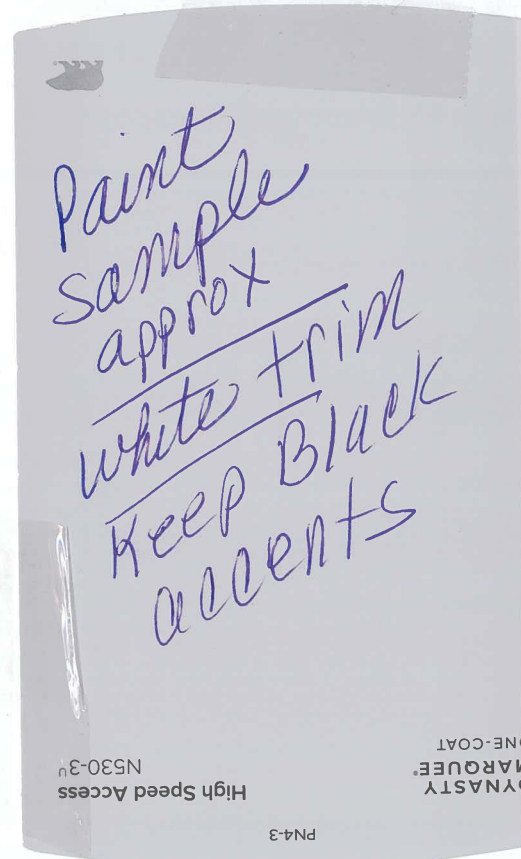 Paint
sample
approx
white trim
Keep Black
accents
High Speed Access
N530-3U
DYNASTY
MARQUEE®
ONE-COAT
PN4-3